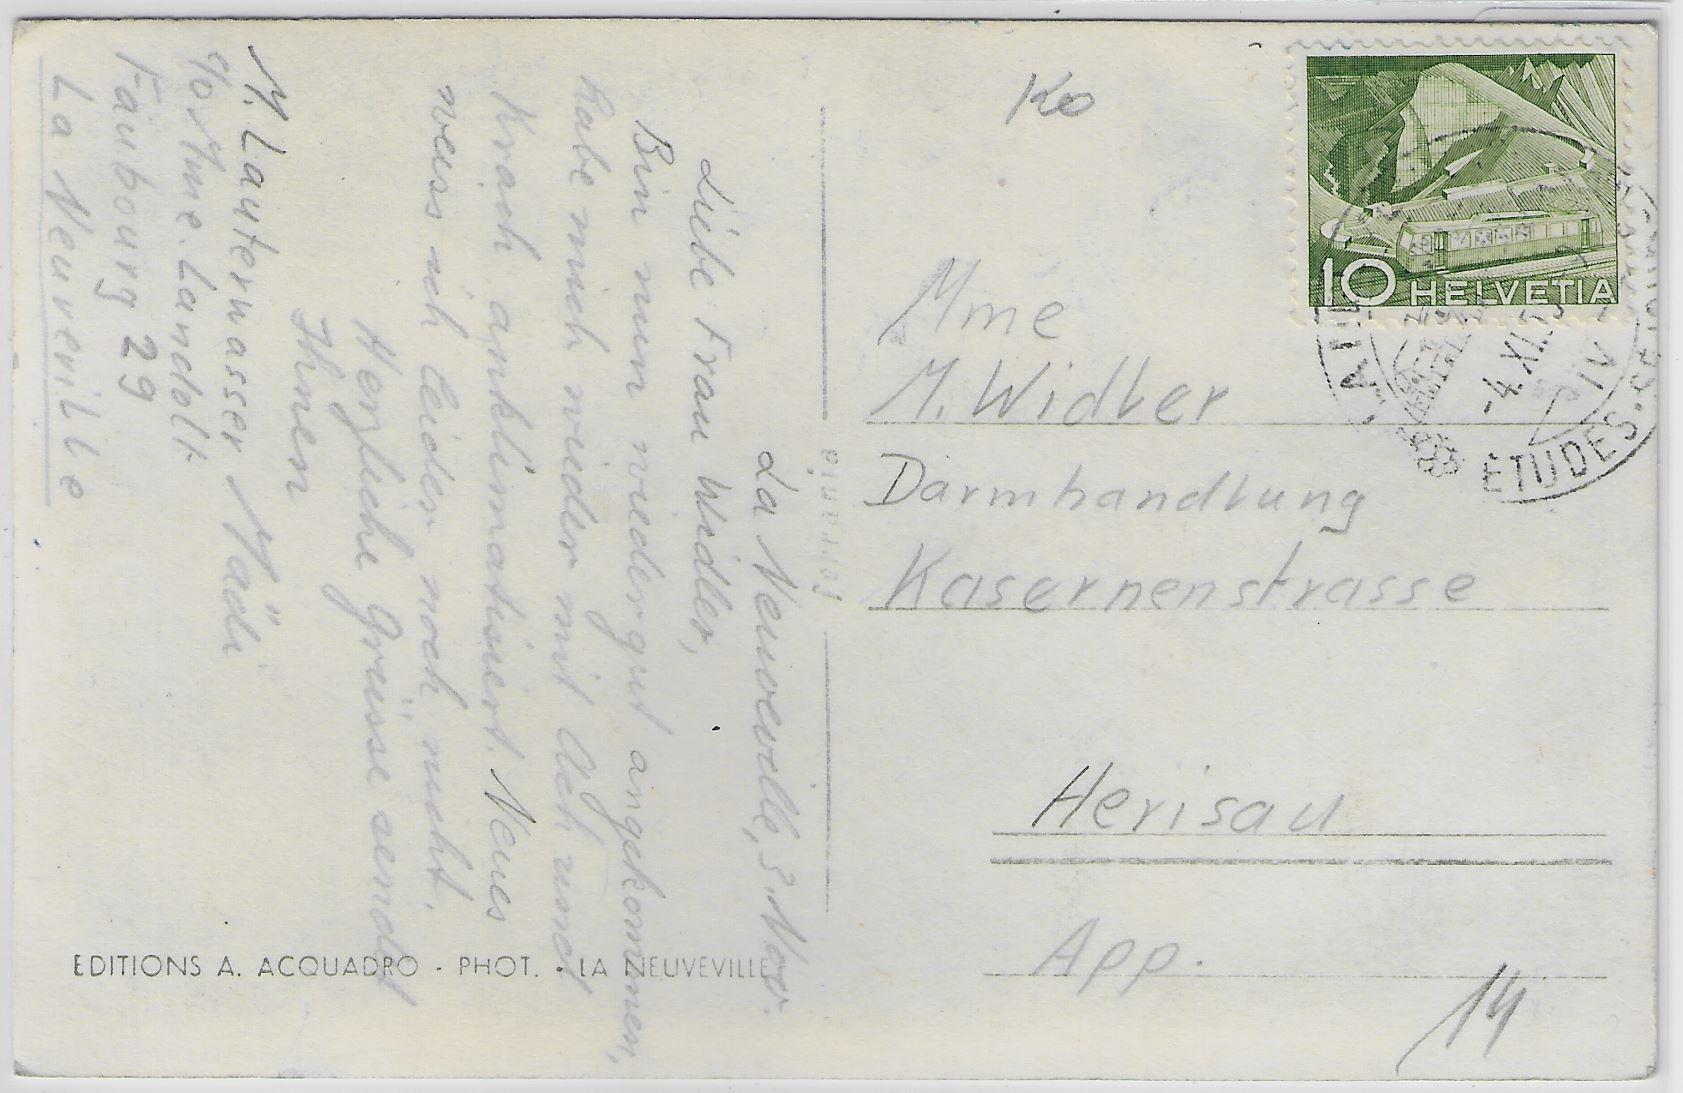 La Neuveville, 3. Nov.
Liebe Frau Widler,
Bin nun wieder gut angekommen,
habe mich wieder mit Ach und
Krach anklimatisiert. Neues
weiss ich leider noch nicht.
Herzliche Grüsse sendet
Ihnen
M. Lauterwasser Mädi
c/o Mme. Landolt
Faubourg 29
La Neuveville
EDITIONS A. ACQUADRO - PHOT. - LA NEUVEVILLE
Ko
10 HELVETIA
-4.XI.
ETUDES
Mme
M. Widler
Darmhandlung
Kasernenstrasse
Herisau
App.
14